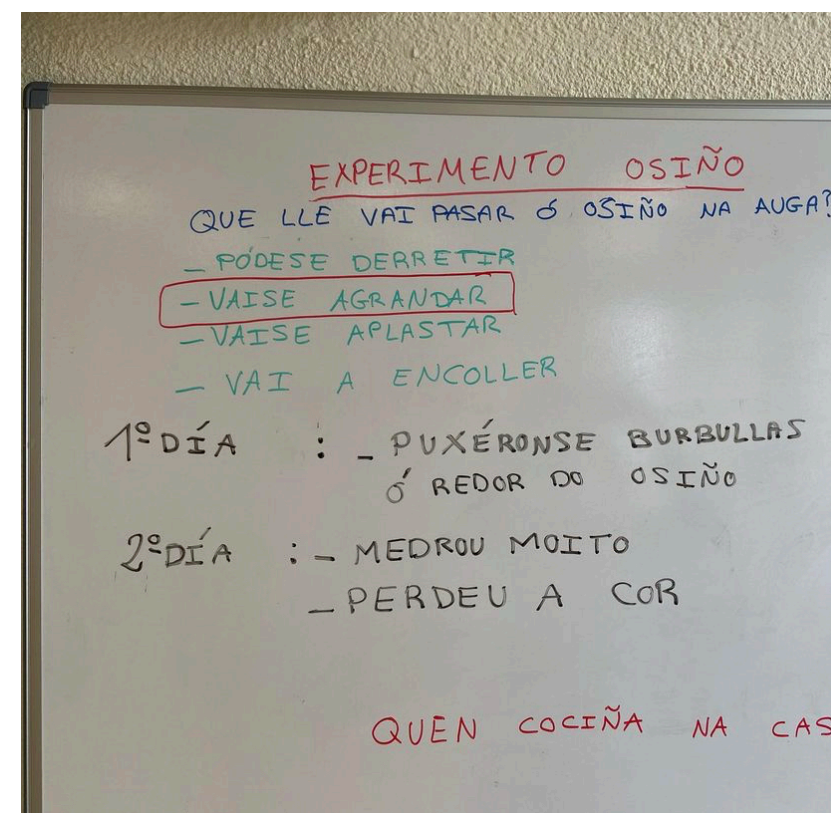 EXPERIMENTO OSIÑO
QUE LLE VAI PASAR Ó OSIÑO NA AUGA?
- PÓDESE DERRETIR
- VAISE AGRANDAR
- VAISE APLASTAR
- VAI A ENCOLLER
1º DÍA : - PUXÉRONSE BURBULLAS
Ó REDOR DO OSIÑO
2º DÍA : - MEDROU MOITO
- PERDEU A COR
QUEN COCIÑA NA CAS